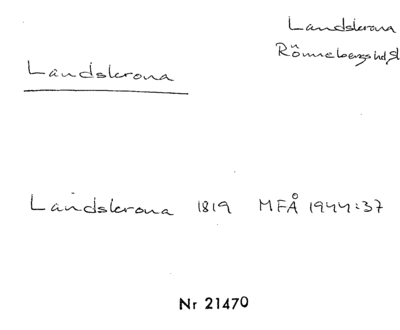 Landskrona
Rönnebergs hd Sk
Landskrona
Landskrona 1819 MFÅ 1944:37
Nr 21470